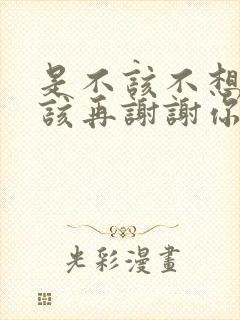 是不該不想
該再謝謝你
光彩漫畫